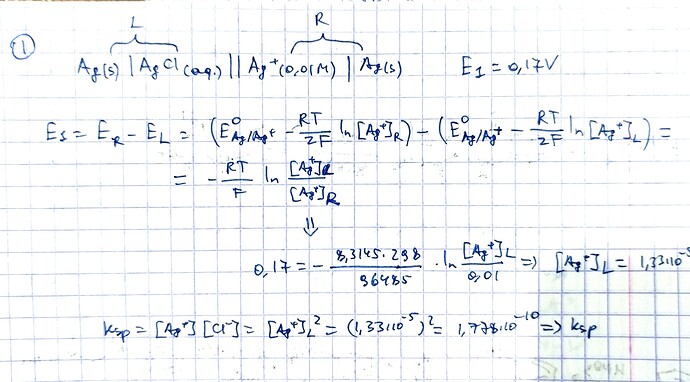 L R
① Ag(s) | AgCl (aq.) || Ag⁺(0,01M) | Ag(s) E₁ = 0,17V
E₁ = E_R - E_L = (E⁰_Ag/Ag⁺ - RT/2F ln[Ag⁺]_R) - (E⁰_Ag/Ag⁺ - RT/2F ln[Ag⁺]_L) =
= - RT/F ln [Ag⁺]_L/[Ag⁺]_R
⇓
0,17 = - 8,3145·298/96485 · ln [Ag⁺]_L/0,01 => [Ag⁺]_L = 1,33·10⁻⁵
Ksp = [Ag⁺][Cl⁻] = [Ag⁺]_L² = (1,33·10⁻⁵)² = 1,778·10⁻¹⁰ => Ksp